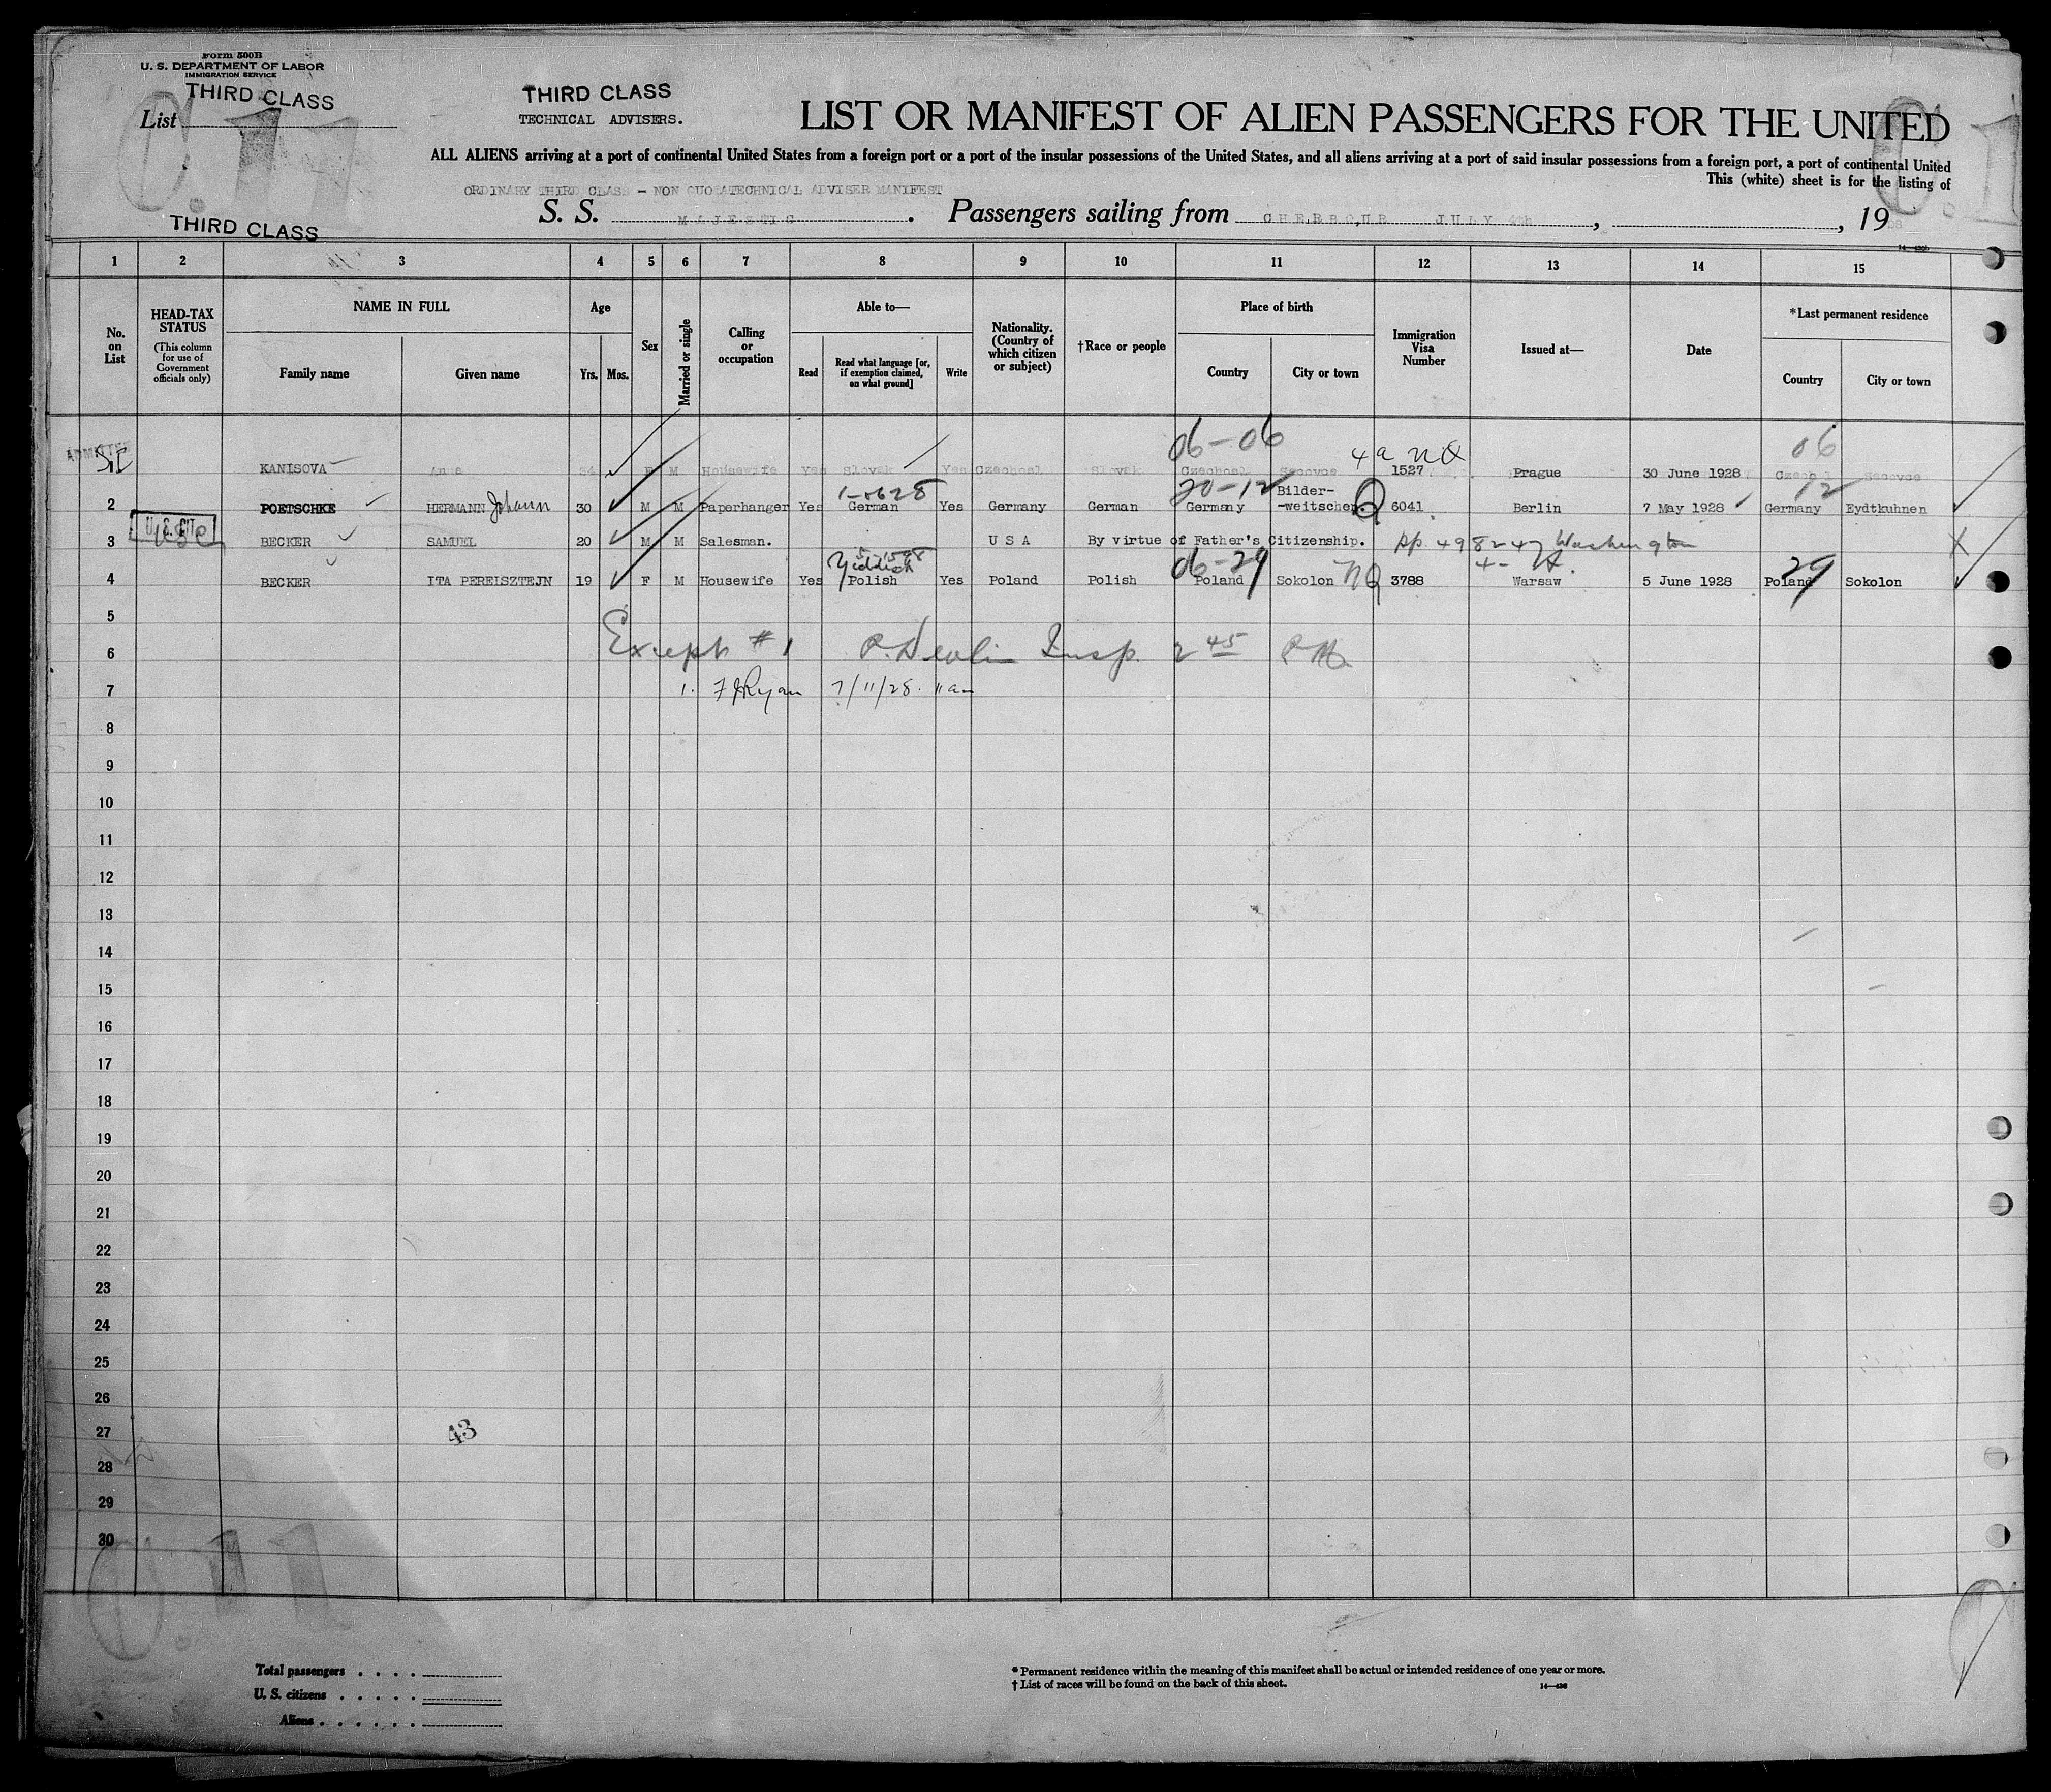 Form 500B
U. S. DEPARTMENT OF LABOR
IMMIGRATION SERVICE
THIRD CLASS
List
C.11
THIRD CLASS
TECHNICAL ADVISERS.
LIST OR MANIFEST OF ALIEN PASSENGERS FOR THE UNITED
ALL ALIENS arriving at a port of continental United States from a foreign port or a port of the insular possessions of the United States, and all aliens arriving at a port of said insular possessions from a foreign port, a port of continental United
This (white) sheet is for the listing of
ORDINARY THIRD CLASS - NON QUOTA TECHNICAL ADVISER MANIFEST
S. S. MAJESTIC. Passengers sailing from CHERBOURG JULY 4th, , 19
THIRD CLASS
1 2 3 4 5 6 7 8 9 10 11 12 13 14 15
No. on List
HEAD-TAX STATUS
(This column for use of Government officials only)
NAME IN FULL
Family name Given name
Age
Yrs. Mos.
Sex
Married or single
Calling or occupation
Able to—
Read Read what language [or, if exemption claimed, on what ground] Write
Nationality. (Country of which citizen or subject)
†Race or people
Place of birth
Country City or town
Immigration Visa Number
Issued at—
Date
*Last permanent residence
Country City or town
06-06 4a NQ 06
ADMITTED SI KANISOVA Anna 34 F M Housewife Yes Slovak Yes Czechosl Slovak Czechosl Secovce 1527 Prague 30 June 1928 Czech Secovce
20-12 12
2 POETSCHKE HERMANN Johann 30 M M Paperhanger Yes German Yes Germany German Germany Bilder-weitschen Q 6041 Berlin 7 May 1928 Germany Eydtkuhnen
3 U.S. CIT BECKER SAMUEL 20 M M Salesman. U S A By virtue of Father's Citizenship. 498247 Washington
Yiddish 06-29 29
4 BECKER ITA PEREISZTEJN 19 F M Housewife Yes Polish Yes Poland Polish Poland Sokolon NQ 3788 Warsaw 5 June 1928 Poland Sokolon
5
6 Except #1 P. Devlin Insp. 2 45 PM
7 1. F J Ryan 7/11/28. 11 am
8
9
10
11
12
13
14
15
16
17
18
19
20
21
22
23
24
25
26
27 43
28
29
30
C.11
Total passengers . . . .
U. S. citizens . . . . .
Aliens . . . . . .
* Permanent residence within the meaning of this manifest shall be actual or intended residence of one year or more.
† List of races will be found on the back of this sheet.
14—430